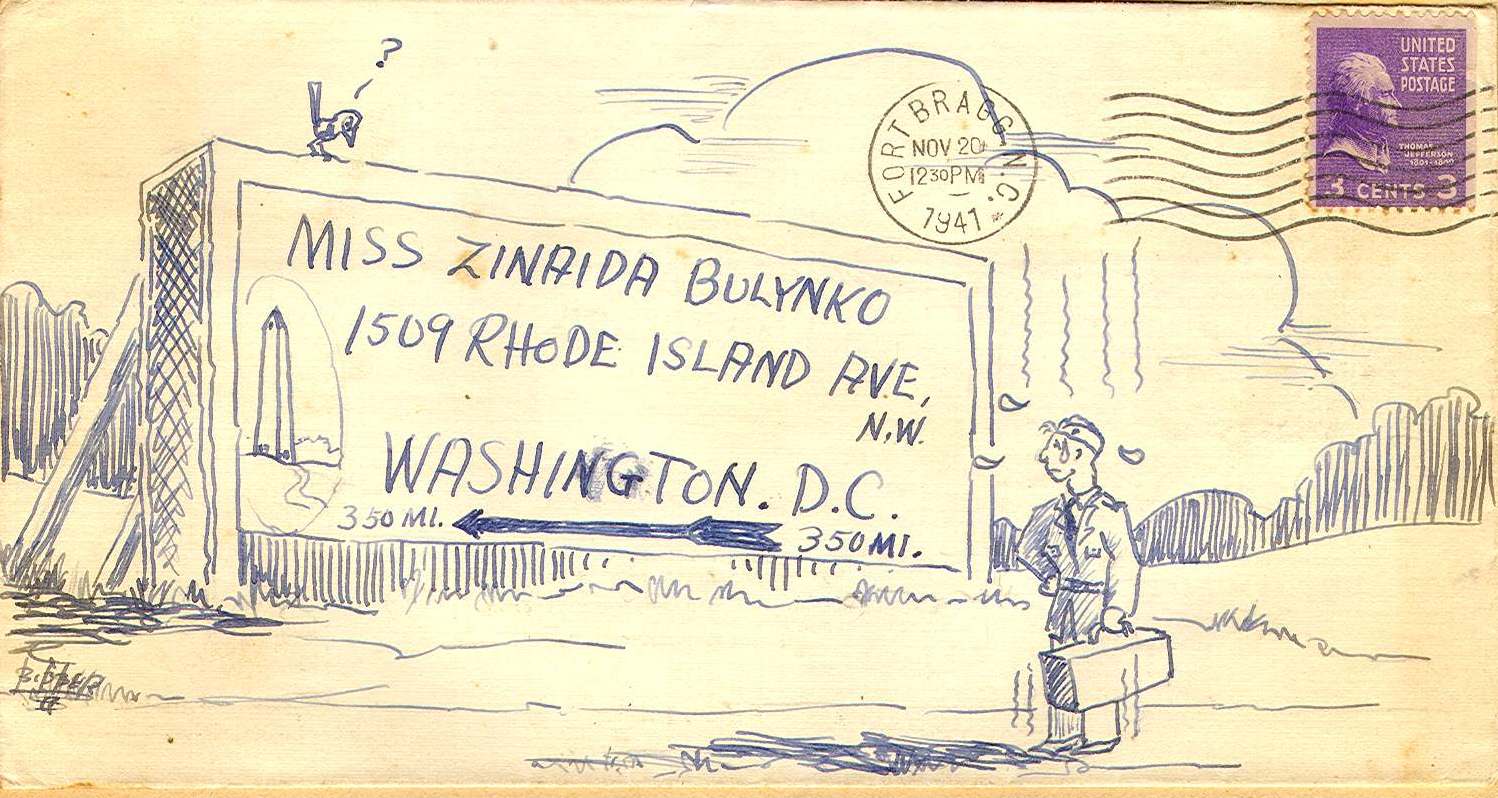 ?
FORT BRAGG N.C.
NOV 20
12 30 PM
1941
UNITED
STATES
POSTAGE
THOMAS
JEFFERSON
3 CENTS 3
MISS ZINAIDA BULYNKO
1509 RHODE ISLAND AVE,
N.W.
WASHINGTON. D.C.
350 MI.
350 MI.